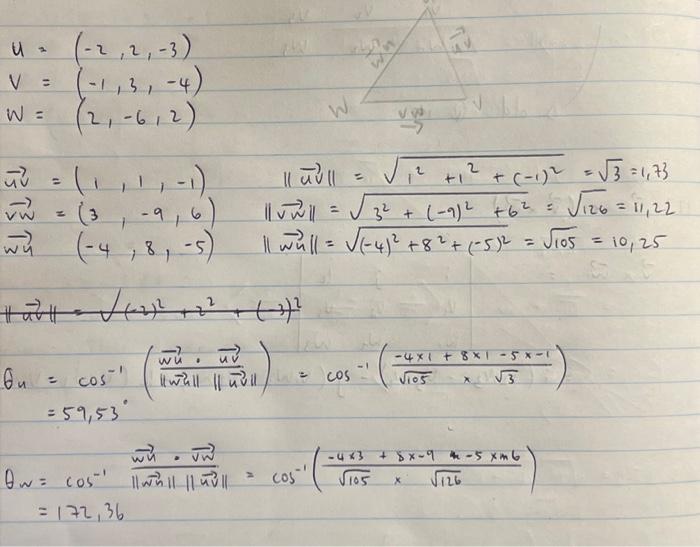 u = (-2, 2, -3)
v = (-1, 3, -4)
W = (2, -6, 2)
W
V
vw
uv = (1, 1, -1) ||uv|| = √1² +1² + (-1)² = √3 = 1,73
vw = (3, -9, 6) ||vw|| = √3² + (-9)² + 6² = √126 = 11,22
wu (-4, 8, -5) ||wu|| = √(-4)² + 8² + (-5)² = √105 = 10,25
||uv|| = √(-2)² + 2² + (-3)²
θu = cos⁻¹ (wu · uv / ||wu|| ||uv||) = cos⁻¹ (-4×1 + 8×1 -5×-1 / √105 × √3)
= 59,53°
θw = cos⁻¹ wu · vw / ||wu|| ||uv|| = cos⁻¹ (-4×3 + 8×-9 -5×6 / √105 × √126)
= 172,36